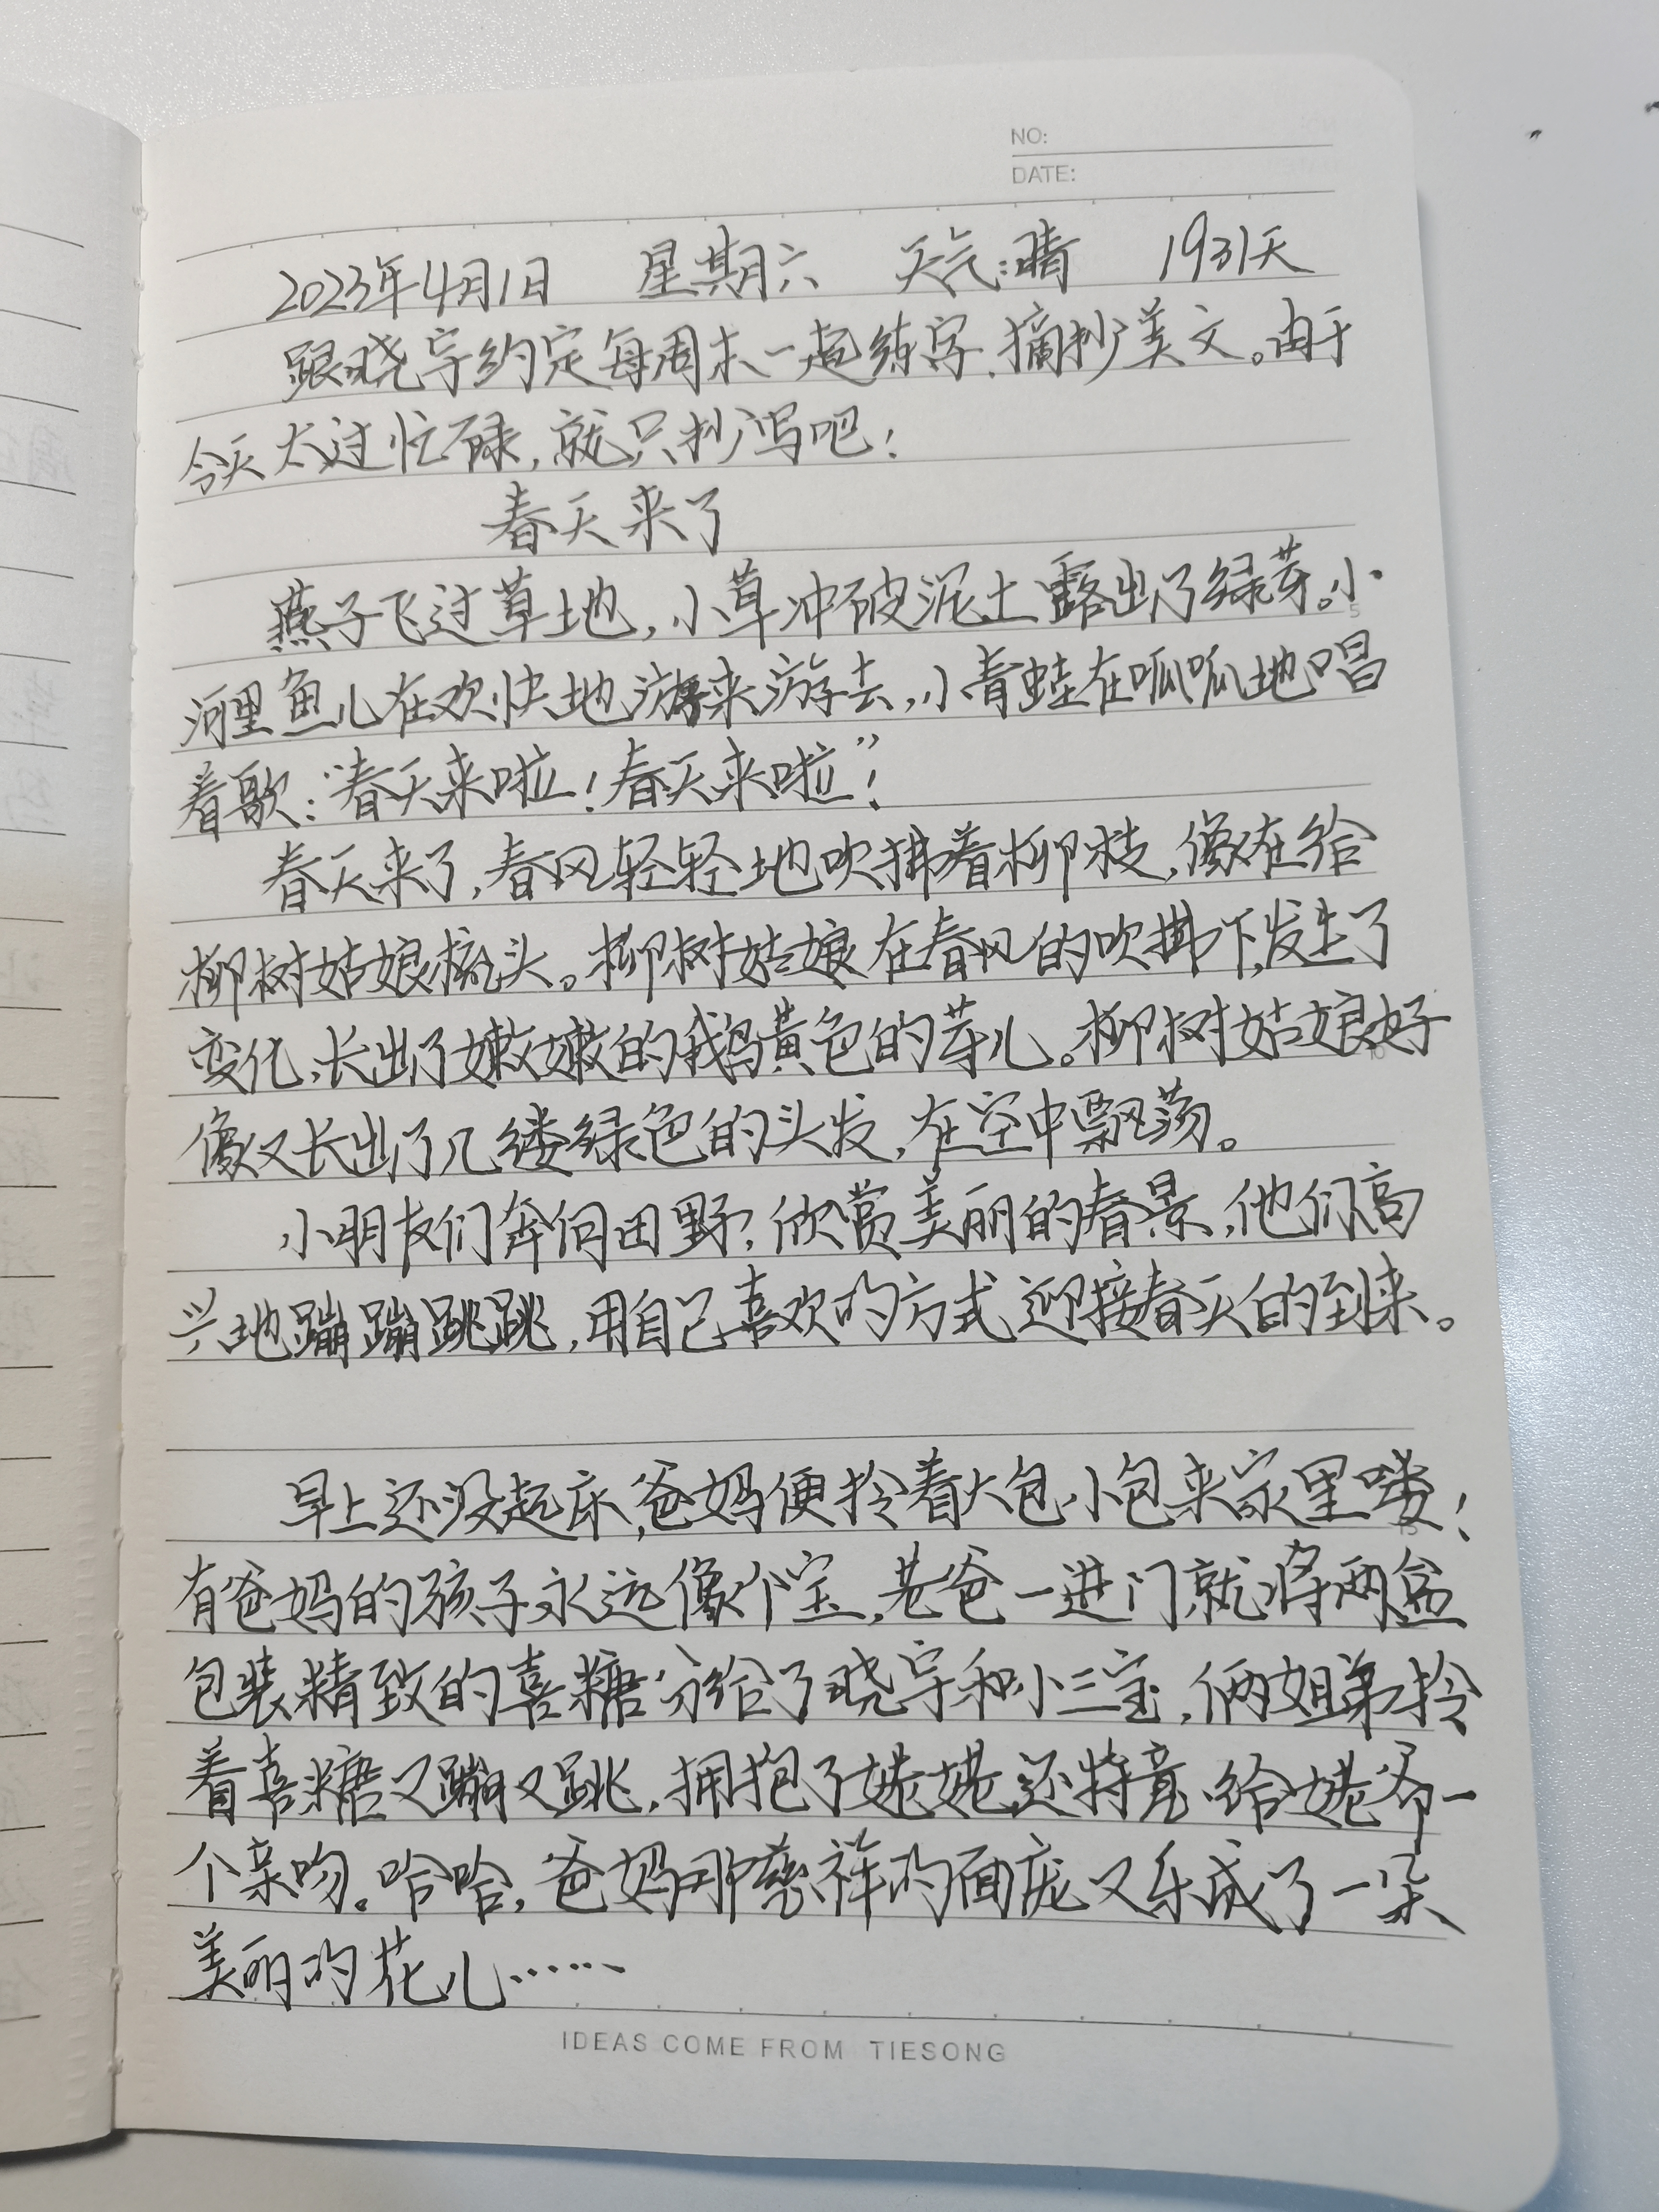 NO:
DATE:
2023年4月1日 星期六 天气:晴 1931天
跟晓宇约定每周末一起练字、摘抄美文。由于
今天太过忙碌,就只抄写吧!
春天来了
燕子飞过草地,小草冲破泥土露出了绿芽。小
河里鱼儿在欢快地游来游去,小青蛙在呱呱地唱
着歌:“春天来啦!春天来啦”!
春天来了,春风轻轻地吹拂着柳枝,像在给
柳树姑娘梳头。柳树姑娘在春风的吹拂下,发生了
变化,长出了嫩嫩的鹅黄色的芽儿。柳树姑娘好
像又长出了几缕绿色的头发,在空中飘荡。
小朋友们奔向田野,欣赏美丽的春景,他们高
兴地蹦蹦跳跳,用自己喜欢的方式迎接春天的到来。
早上还没起床,爸妈便拎着大包小包来家里喽!
有爸妈的孩子永远像个宝,老爸一进门就将两盆
包装精致的喜糖分给了晓宇和小三宝,俩姐弟拎
着喜糖又蹦又跳,拥抱了姥姥还特意给姥爷一
个亲吻。哈哈,爸妈那慈祥的面庞又乐成了一朵
美丽的花儿……
IDEAS COME FROM TIESONG